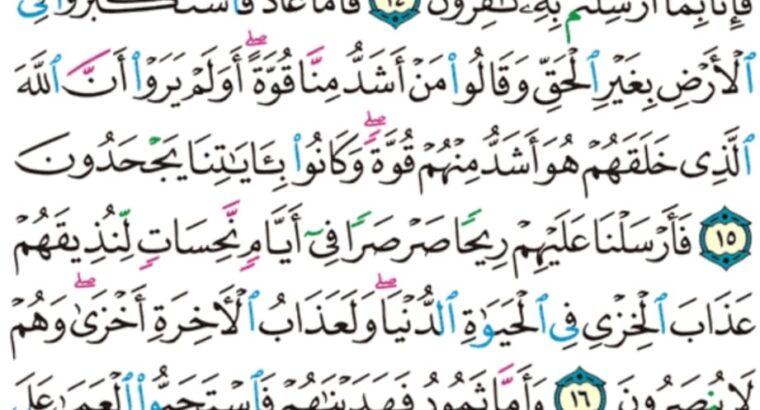 فَإِنَّا بِمَا أُرْسِلْتُم بِهِۦ كَٰفِرُونَ ١٤ فَأَمَّا عَادٌ فَٱسْتَكْبَرُوا۟ فِى
ٱلْأَرْضِ بِغَيْرِ ٱلْحَقِّ وَقَالُوا۟ مَنْ أَشَدُّ مِنَّا قُوَّةً ۖ أَوَلَمْ يَرَوْا۟ أَنَّ ٱللَّهَ
ٱلَّذِى خَلَقَهُمْ هُوَ أَشَدُّ مِنْهُمْ قُوَّةً ۖ وَكَانُوا۟ بِـَٔايَٰتِنَا يَجْحَدُونَ
١٥ فَأَرْسَلْنَا عَلَيْهِمْ رِيحًا صَرْصَرًا فِىٓ أَيَّامٍ نَّحِسَاتٍ لِّنُذِيقَهُمْ
عَذَابَ ٱلْخِزْىِ فِى ٱلْحَيَوٰةِ ٱلدُّنْيَا ۖ وَلَعَذَابُ ٱلْـَٔاخِرَةِ أَخْزَىٰ ۖ وَهُمْ
لَا يُنصَرُونَ ١٦ وَأَمَّا ثَمُودُ فَهَدَيْنَٰهُمْ فَٱسْتَحَبُّوا۟ ٱلْعَمَىٰ عَلَى